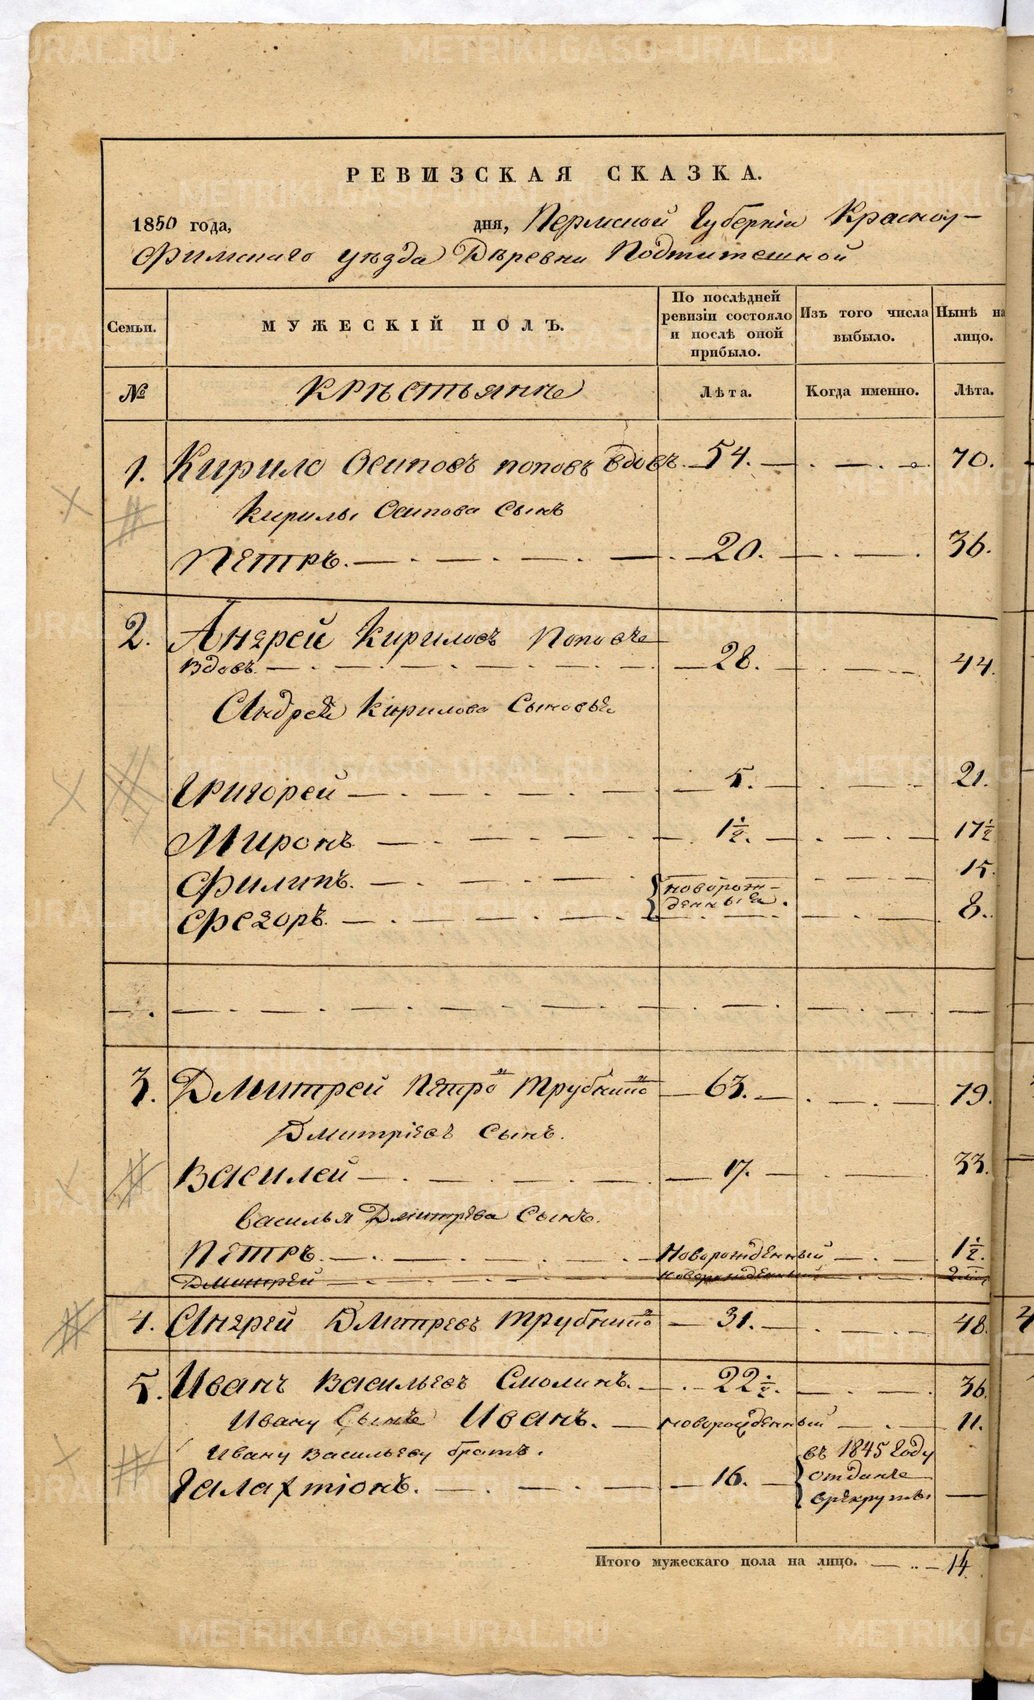 РЕВИЗСКАЯ СКАЗКА.
1850 года, дня, Пермской Губерніи Красноу-
Фимскаго уѣзда Деревни Подтитешной
Семьи. МУЖЕСКІЙ ПОЛЪ. По послѣдней ревизіи состояло и послѣ оной прибыло. Изъ того числа выбыло. Нынѣ на лицо.
№ Крѣстьянѣ Лѣта. Когда именно. Лѣта.
1. Кирило Осиповъ поповъ вдовъ. 54. 70.
Кирилы Осипова сынъ
Пѣтръ. 20. 36.
2. Андрей Кириловъ Поповъ
вдовъ. 28. 44
Андрея Кирилова Сыновья
Григорей 5. 21.
Миронъ 1½. 17½
Филипъ. 15.
новорож-
денныѣ.
Федоръ. 8.
3. Дмитрей Пѣтро Трубкинъ 63. 79.
Дмитріевъ сынъ.
Василей 17. 33.
Василья Дмитрѣва Сынъ.
Пѣтръ. Новорожденный 1½.
Дмитрей новорожденный 2
4. Андрей Дмитревъ Трубкинъ 31. 48.
5. Иванъ Васильевъ Смолинъ. 22½. 36
Ивану Сынъ Иванъ. новорожденный 11.
Ивану Васильеву братъ.
Галактіонъ. 16. въ 1845 году
отданъ
врекруты
Итого мужескаго пола на лицо. 14
METRIKI.GASO-URAL.RU